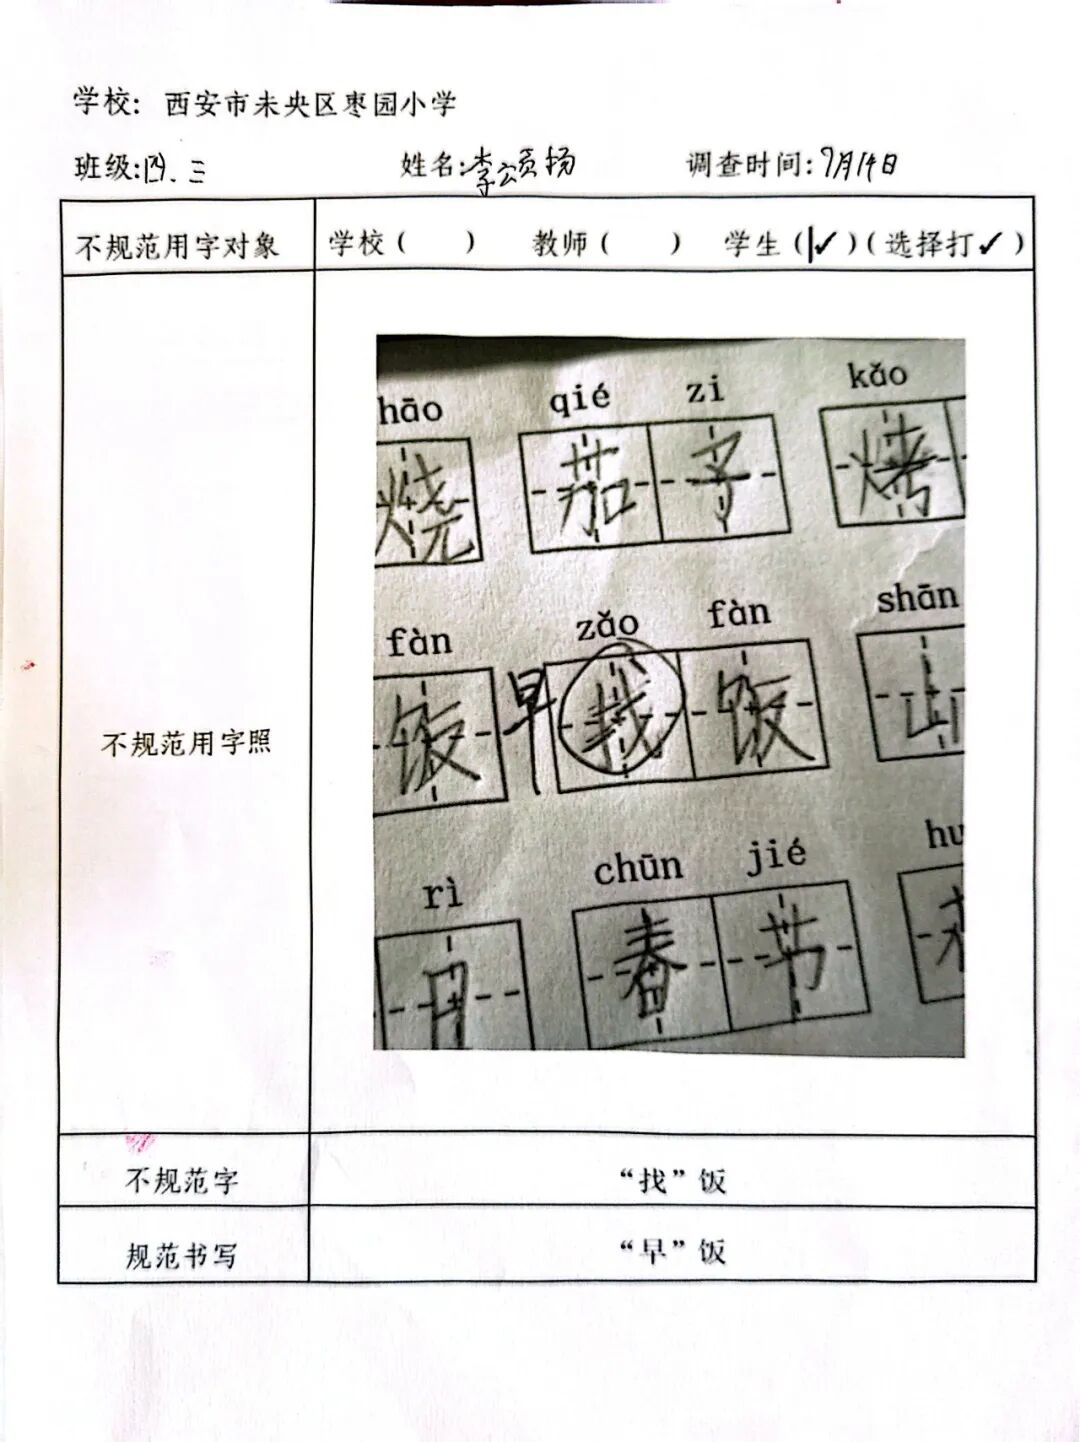 学校: 西安市未央区枣园小学
班级:四.三 姓名:李颂扬 调查时间:9月14日
不规范用字对象 学校( ) 教师( ) 学生(✓)(选择打✓)
不规范用字照
hāo qié zi kǎo
烧 茄子 烤
fàn zǎo fàn shān
饭 早 饭 山
rì chūn jié hu
日 春节
不规范字 “找”饭
规范书写 “早”饭